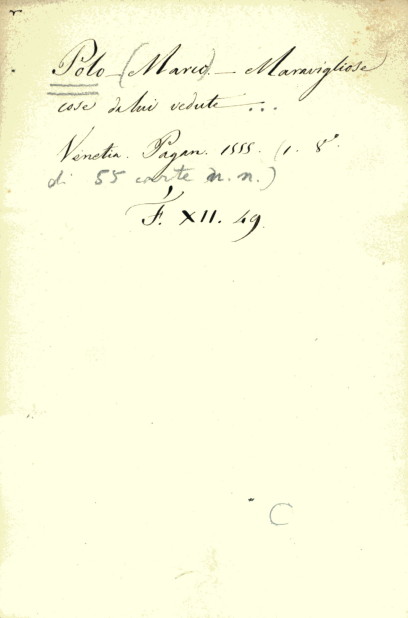 Polo (Marco). — Maravigliose
cose da lui vedute ...
Venetia. Pagan. 1555. (1. 8°.
di 55 carte n. n.)
F. XII. 49
C